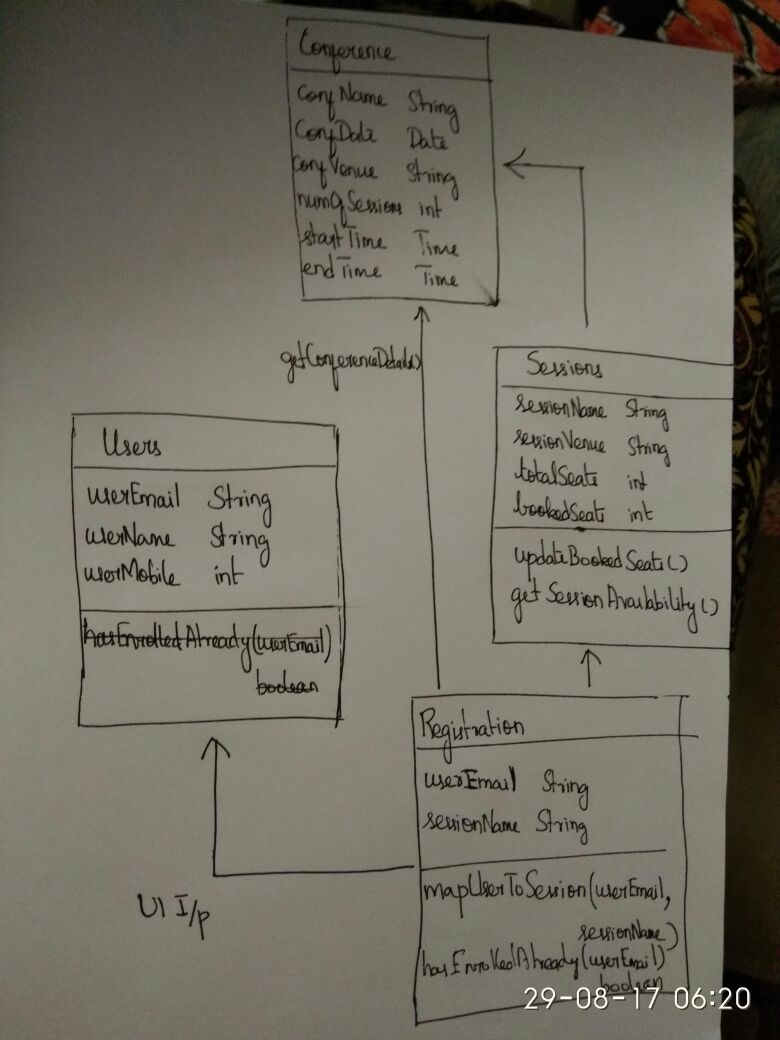 Conference
confName String
ConfDate Date
confVenue String
numOfSessions int
startTime Time
endTime Time
getConferenceDetails()
Sessions
sessionName String
sessionVenue String
totalSeats int
bookedSeats int
updateBookedSeats()
getSessionAvailability()
Users
userEmail String
userName String
userMobile int
hasEnrolledAlready(userEmail)
boolean
Registration
userEmail String
sessionName String
mapUserToSession(userEmail,
sessionName)
hasEnrolledAlready(userEmail)
boolean
UI I/p
29-08-17 06:20